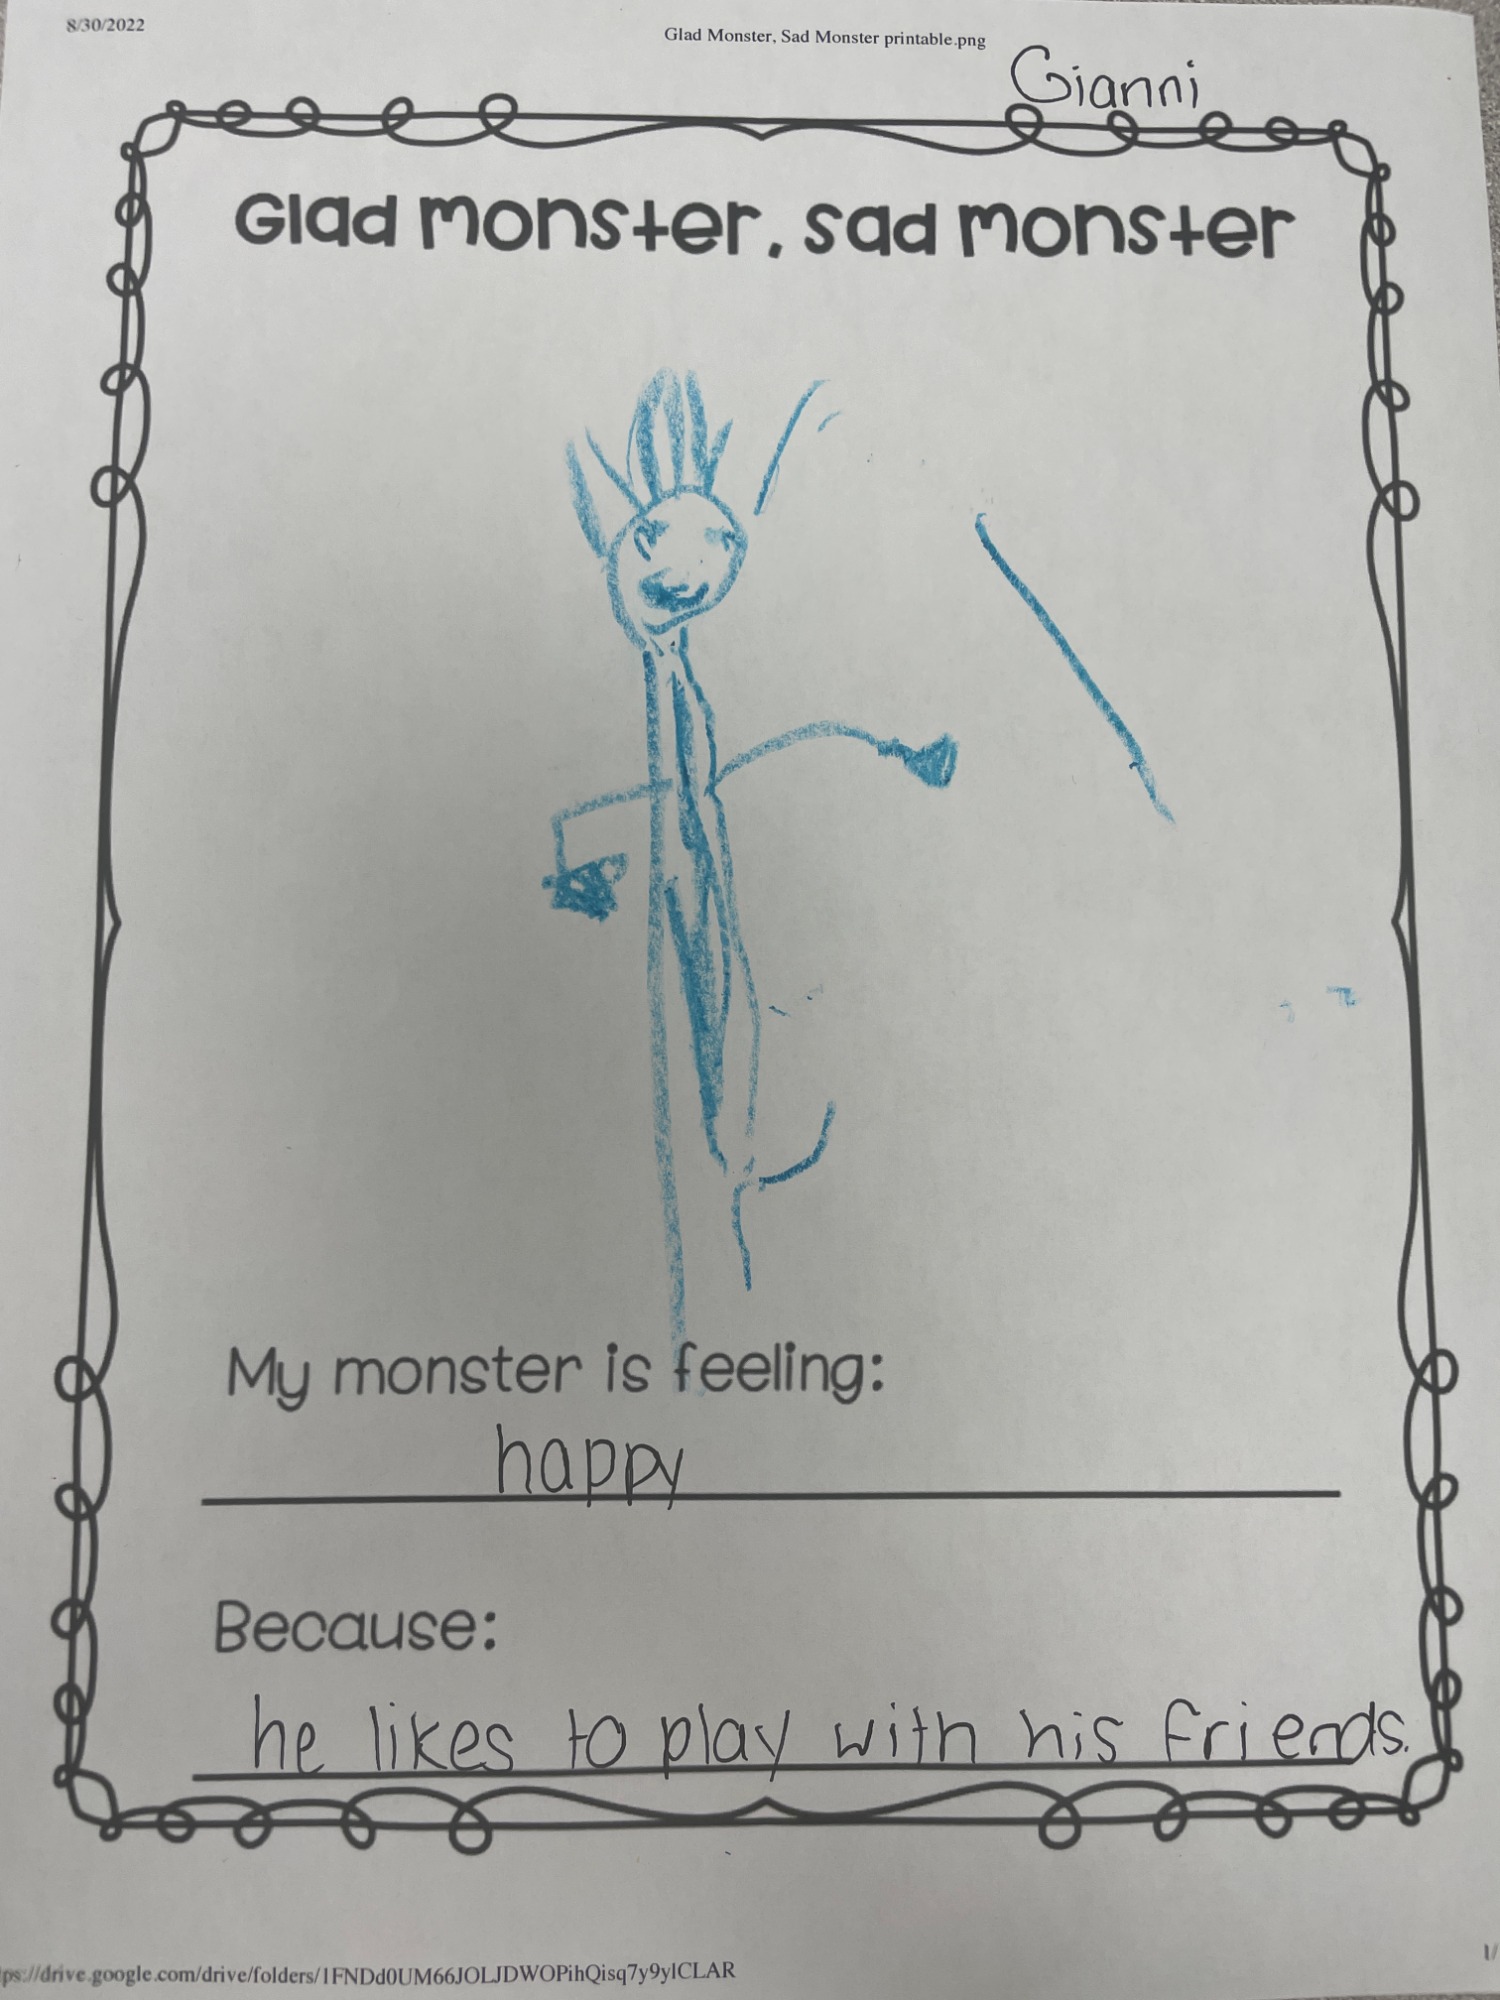 8/30/2022
Glad Monster, Sad Monster printable.png
Gianni
Glad monster, sad monster
My monster is feeling:
happy
Because:
he likes to play with his friends.
ps://drive.google.com/drive/folders/1FNDd0UM66JOLJDWOPihQisq7y9ylCLAR
1/